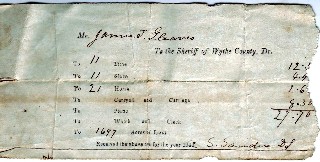 Mr. James T. Gleaves
To the Sheriff of Wythe County, Dr.
To 11 Tithe 12.
To 11 Slave 4.4
To 21 Horse 1.6
To Carryall and Carriage
To Piano
To Watch and Clock 27.70
To 1697 Acres of Land
Received the above tax for the year 18 S. Saunders D.S.